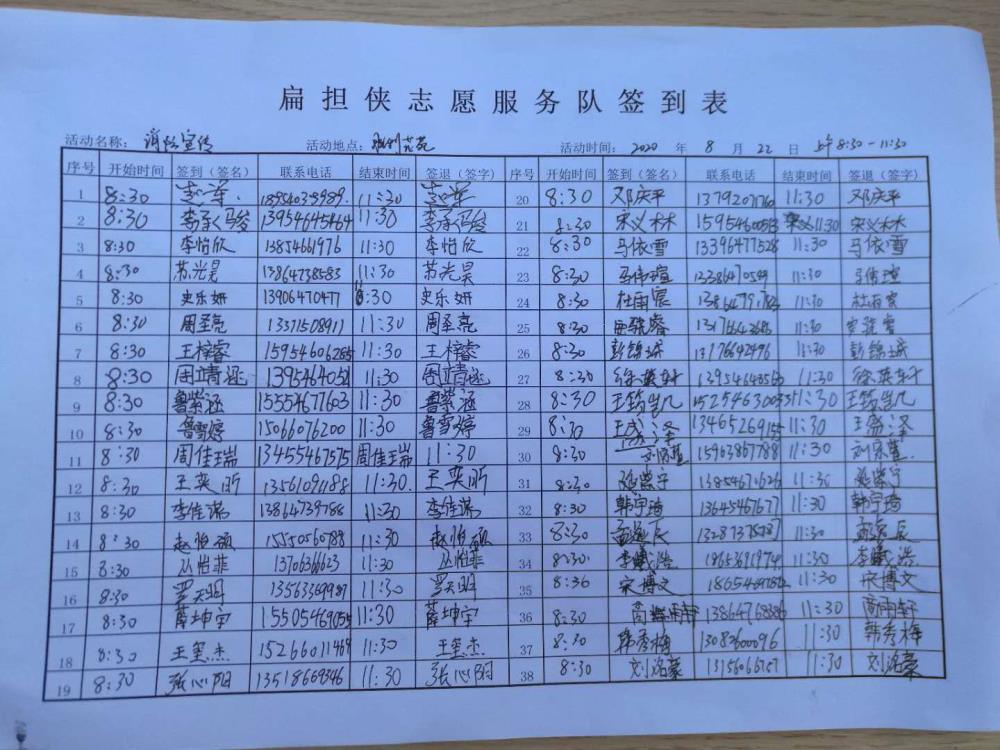 扁担侠志愿服务队签到表
活动名称：消防宣传 活动地点： 活动时间：2020 年 8 月 22 日 上午 8:30-11:30
序号 开始时间 签到（签名） 联系电话 结束时间 签退（签字） 序号 开始时间 签到（签名） 联系电话 结束时间 签退（签字）
1 8:30 11:30 20 8:30 邓庆平 13792071760 11:30 邓庆平
2 8:30 13954645464 11:30 21 8:30 宋义林 11:30 宋义林
3 8:30 李怡欣 13854661976 11:30 李怡欣 22 8:30 马依雪 13396477528 11:30 马依雪
4 8:30 苏光昊 13864738583 11:30 苏光昊 23 8:30 马伟瑄 11:30 马伟瑄
5 8:30 史乐妍 13906470477 8:30 史乐妍 24 8:30 杜雨宸 11:30 杜雨宸
6 8:30 周圣亮 13371508911 11:30 周圣亮 25 8:30 11:30
7 8:30 王梓睿 15954606285 11:30 王梓睿 26 8:30 13176642496 11:30
8 8:30 周靖涵 1395464051 11:30 周靖涵 27 8:30 11:30
9 8:30 鲁紫涵 15554677603 11:30 鲁紫涵 28 8:30 11:30
10 8:30 鲁雪婷 15066076200 11:30 鲁雪婷 29 8:30 王盛泽 11:30 王盛泽
11 8:30 周佳瑞 13455467575 周佳瑞 11:30 30 8:30 15963867788 11:30
12 8:30 王奕昕 13561091188 11:30 王奕昕 31 8:30 13854671626 11:30
13 8:30 李佳诺 13864739788 11:30 李佳诺 32 8:30 韩宇琦 13645467677 11:30 韩宇琦
14 8:30 赵怡硕 11:30 赵怡硕 33 8:30 11:30
15 8:30 丛怡菲 1370636623 11:30 丛怡菲 34 8:30 李曦浩 11:30 李曦浩
16 8:30 罗天明 11:30 罗天明 35 8:30 宋博文 11:30 宋博文
17 8:30 薛坤宇 11:30 薛坤宇 36 8:30 11:30 商雨轩
18 8:30 王玺杰 15266011469 11:30 王玺杰 37 8:30 韩秀梅 13083600096 11:30 韩秀梅
19 8:30 张心阳 13518669346 11:30 张心阳 38 8:30 刘洺豪 11:30 刘洺豪